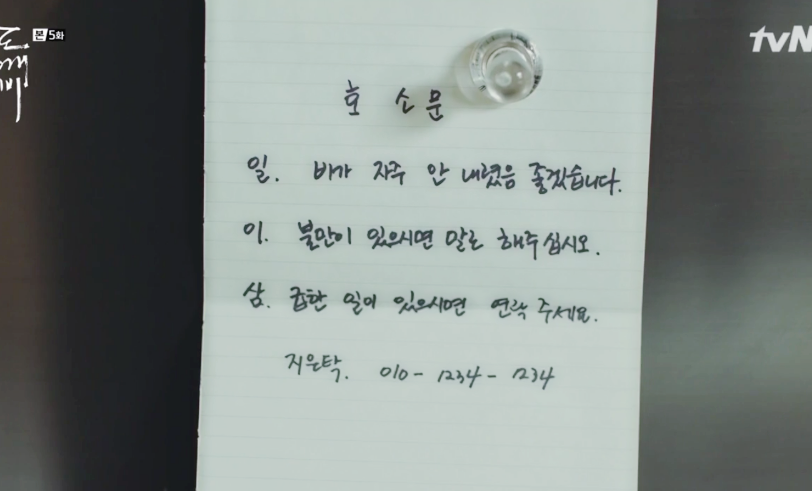 도깨비
본 5화
tvN
호 소 문
일. 비가 자주 안 내렸음 좋겠습니다.
이. 불만이 있으시면 말로 해주십시오.
삼. 급한 일이 있으시면 연락 주세요.
지은탁. 010 - 1234 - 1234